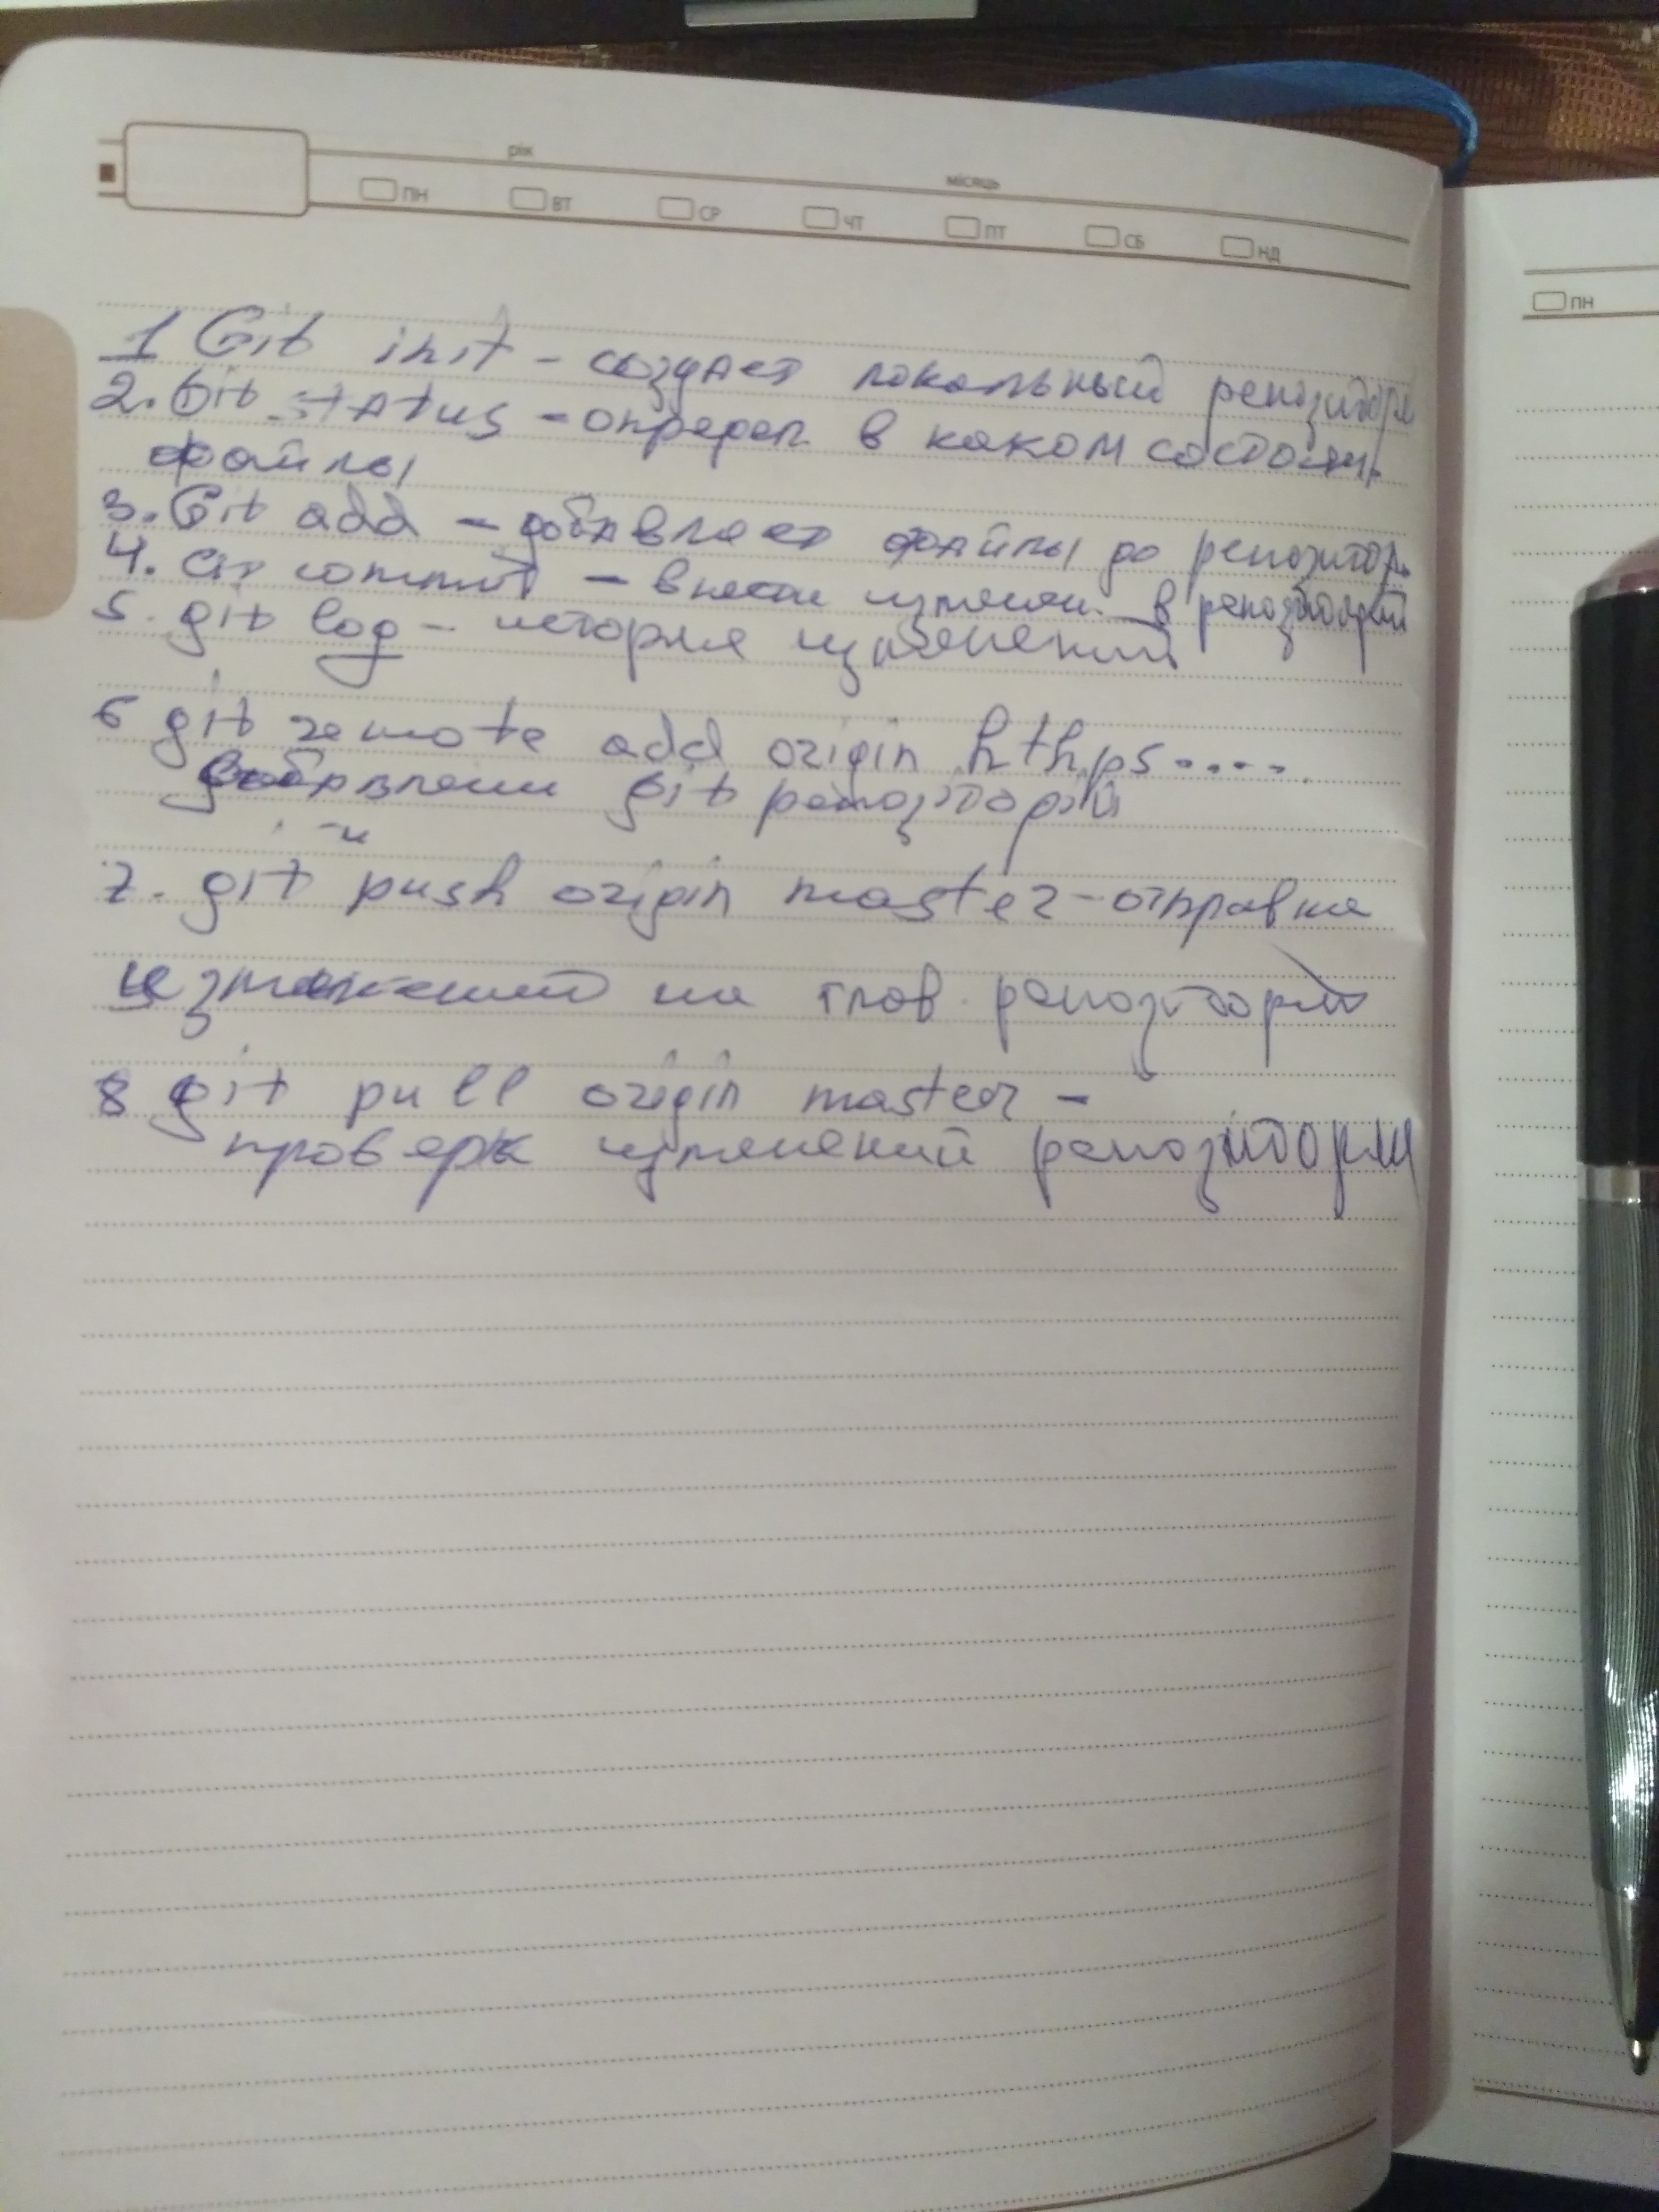 рік місяць
ПН ВТ СР ЧТ ПТ СБ НД
ПН
1 Git init - создает локальный репозитори
2. Git status - определ. в каком состоян.
файлы
3. Git add - добавляет файлы до репозитор.
4. Git commit - внести изменен. в репозиторий
5. git log - история изменений
6 git remote add origin hthps.....
добавлении git репозиторий
7. git push origin master - отправка
изменений на глав. репозиторий
8 git pull origin master -
проверк изменений репозитории